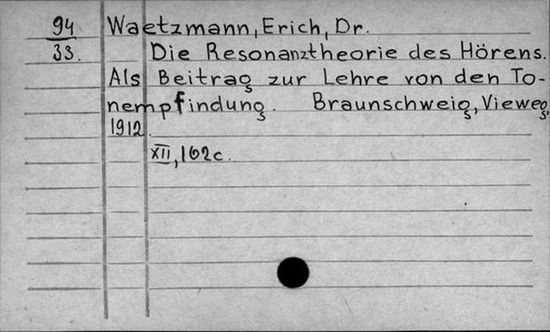 94 Waetzmann, Erich, Dr.
33. Die Resonanztheorie des Hörens.
Als Beitrag zur Lehre von den To-
nempfindung. Braunschweig, Vieweg,
1912.
XII, 162c.